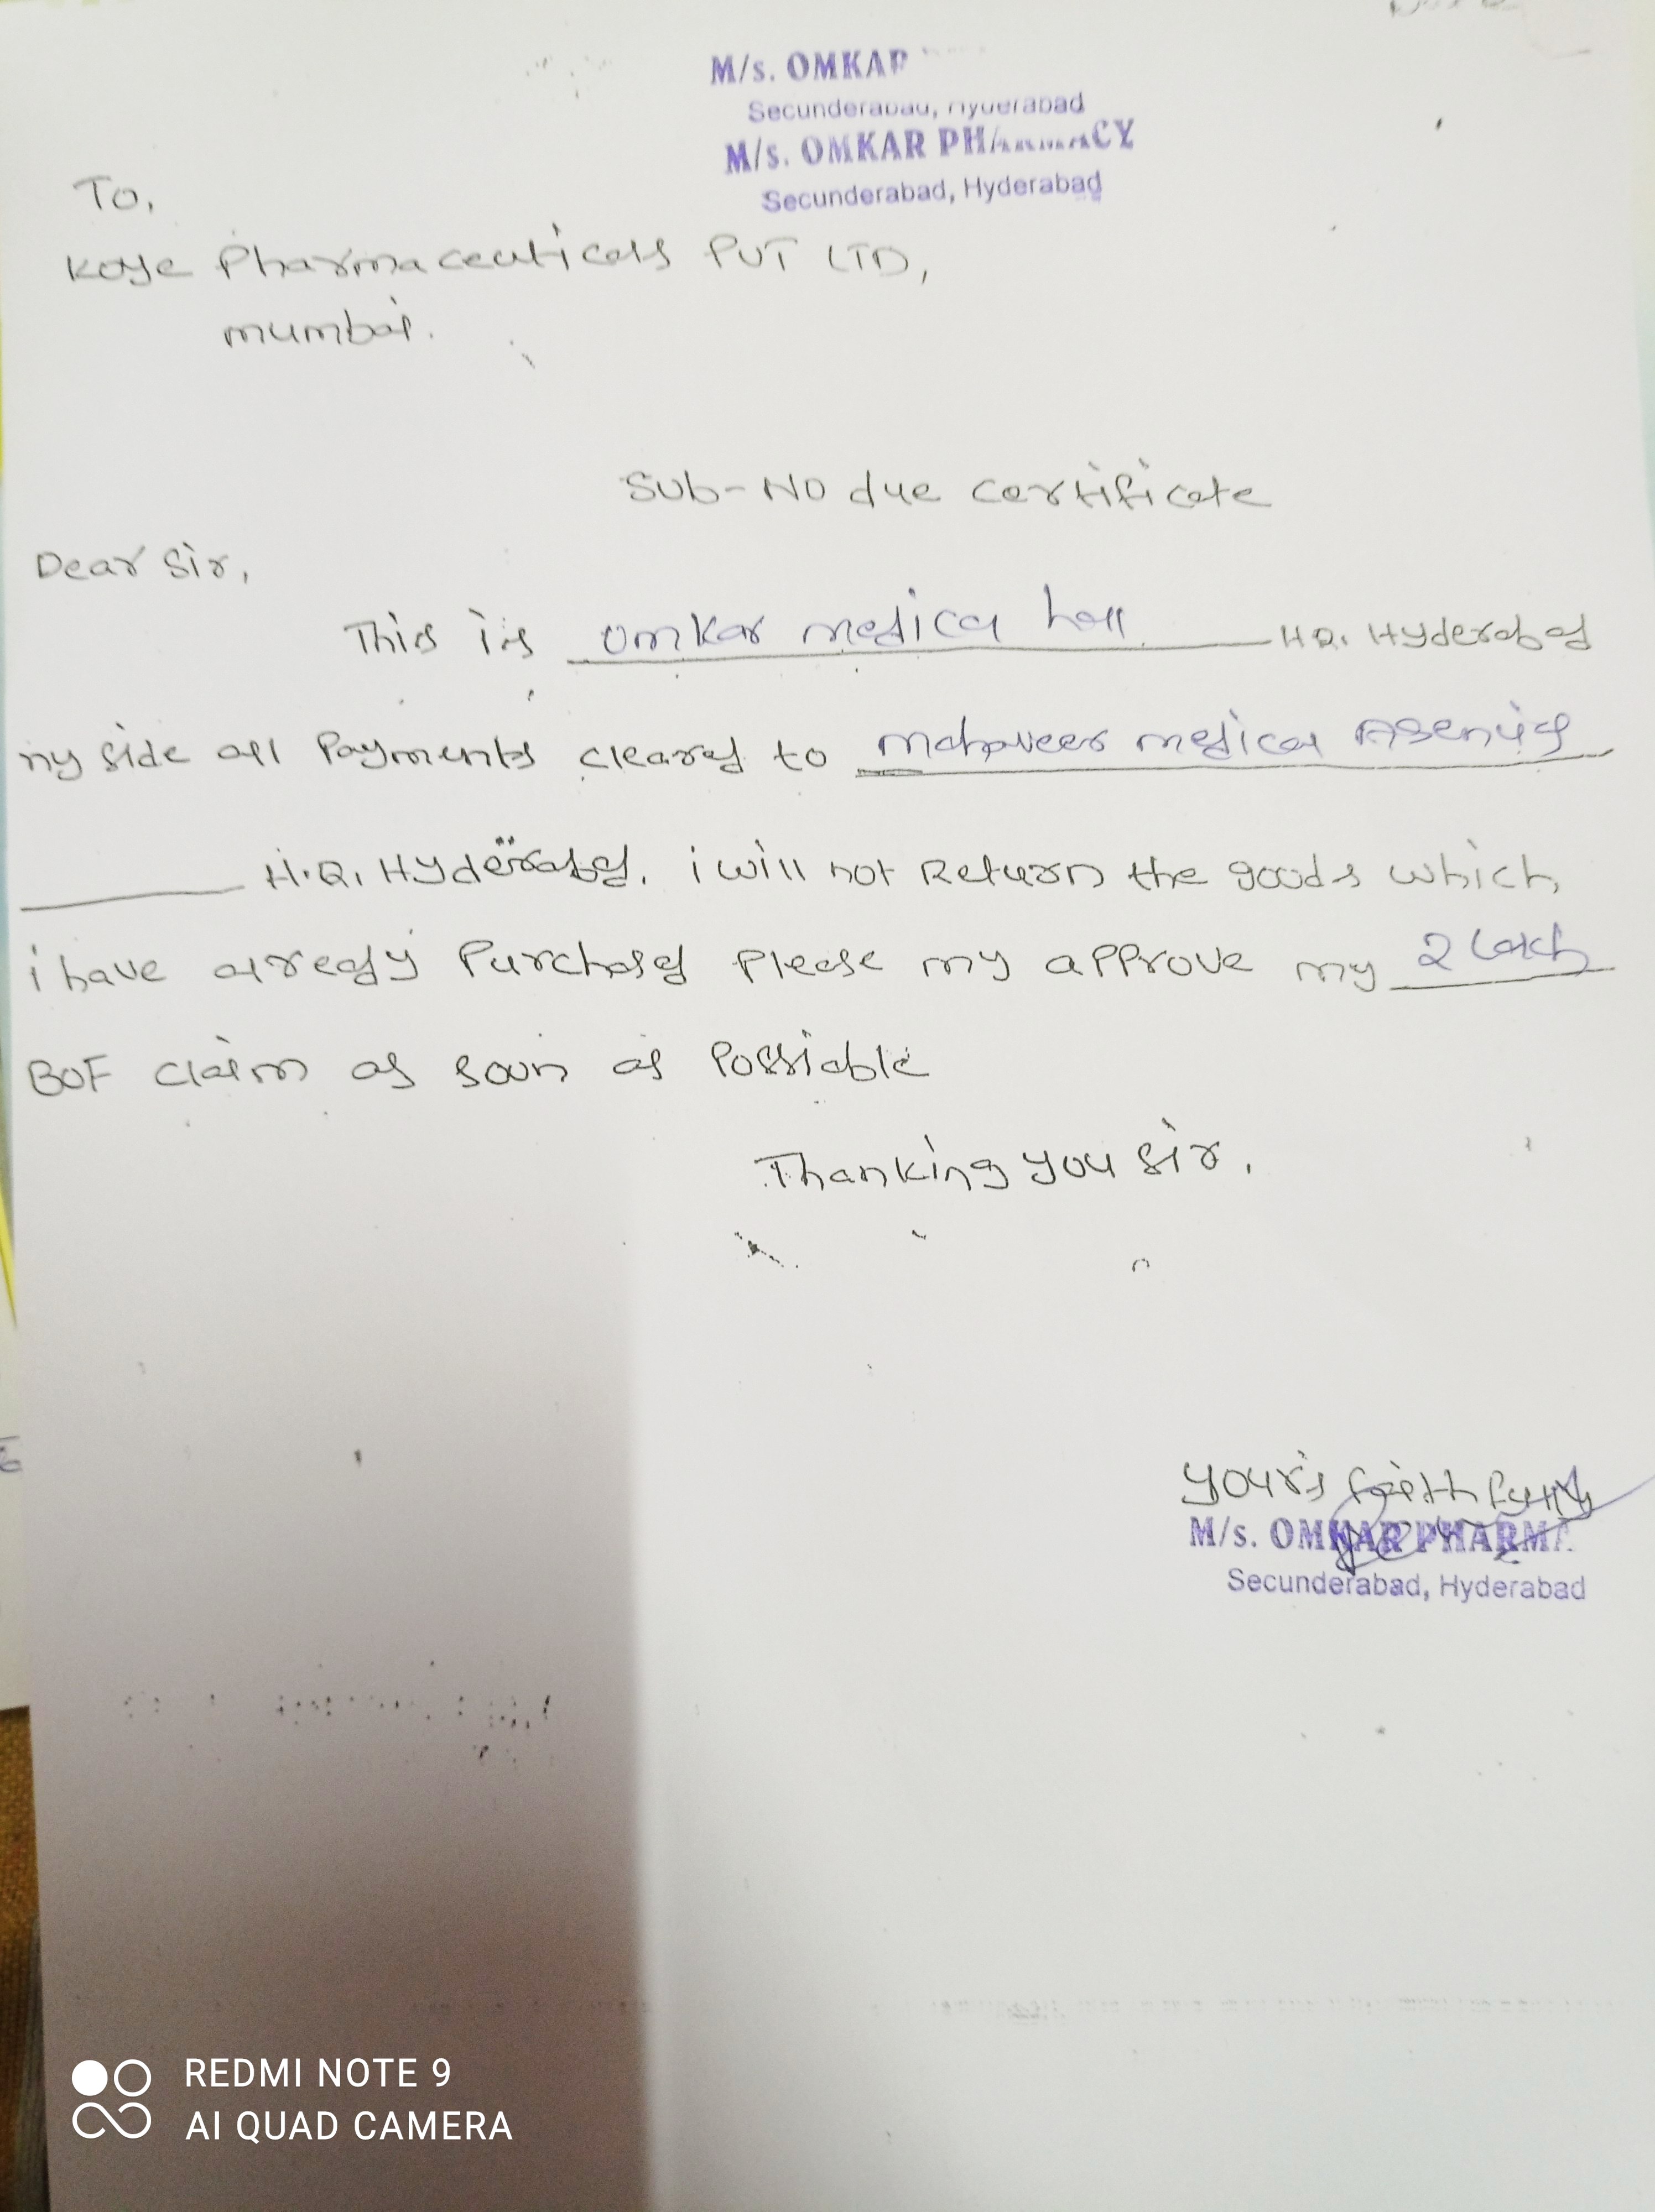 M/s. OMKAR
Secunderabad, Hyderabad
M/s. OMKAR PHARMACY
Secunderabad, Hyderabad
To,
Koye Pharmaceuticals PVT LTD,
mumbai.
Sub-No due certificate
Dear Sir,
This is omkar medical hall H.Q. Hyderabad
my side all Payments cleared to mahaveer medical Agencies
H.Q. Hyderabad. i will not Return the goods which
i have already Purchased Please my approve my 2 Lakh
BOF claim as soon as Possiable
Thanking you Sir.
your's faithfully
M/s. OMKAR PHARMA
Secunderabad, Hyderabad
REDMI NOTE 9
AI QUAD CAMERA